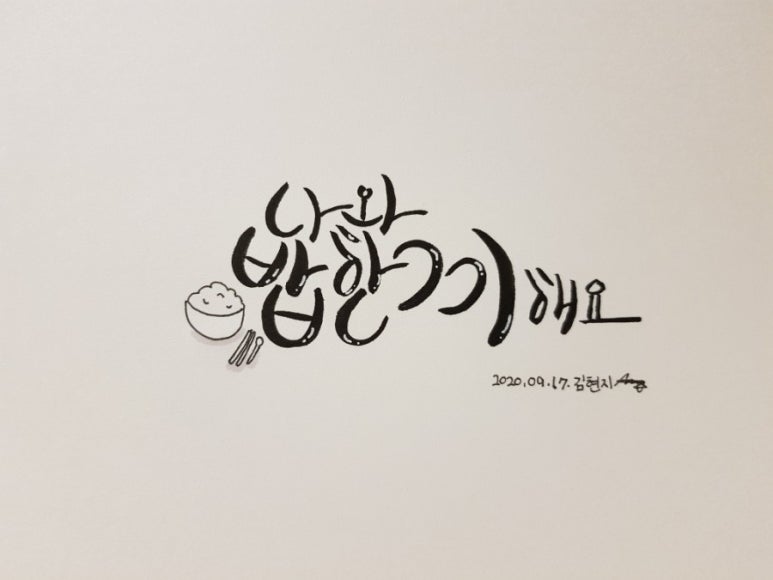 나와
밥한끼해요
2020.09.17.김현지